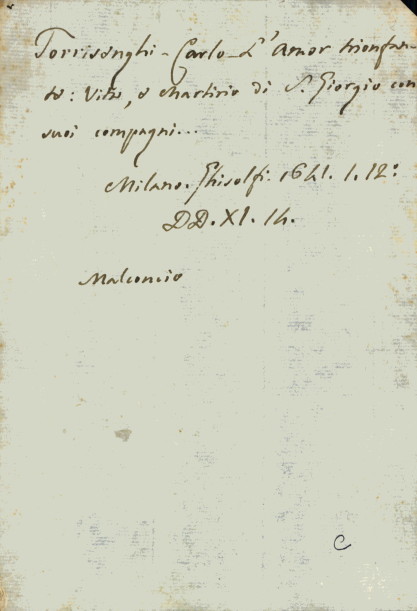 Torrisenghi - Carlo - L'Amor trionfan-
te: Vita, e Martirio di S. Giorgio con
suoi compagni...
Milano. Ghisolfi. 1641. 1. 12°
DD. XI. 14.
Malconcio
C